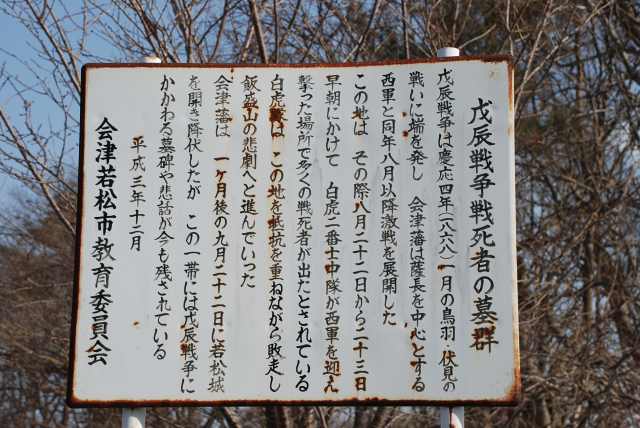 戊辰戦争戦死者の墓群
戊辰戦争は慶応四年(一八六八)一月の鳥羽 伏見の
戦いに端を発し 会津藩は薩長を中心とする
西軍と同年八月以降激戦を展開した
この地は その際八月二十二日から二十三日
早朝にかけて 白虎二番士中隊が西軍を迎え
撃った場所で多くの戦死者が出たとされている
白虎隊は この地を抵抗を重ねながら敗走し
飯盛山の悲劇へと進んでいった
会津藩は 一ヶ月後の九月二十二日に若松城
を開き降伏したが この一帯には戊辰戦争に
かかわる墓碑や悲話が今も残されている
平成三年十二月
会津若松市教育委員会